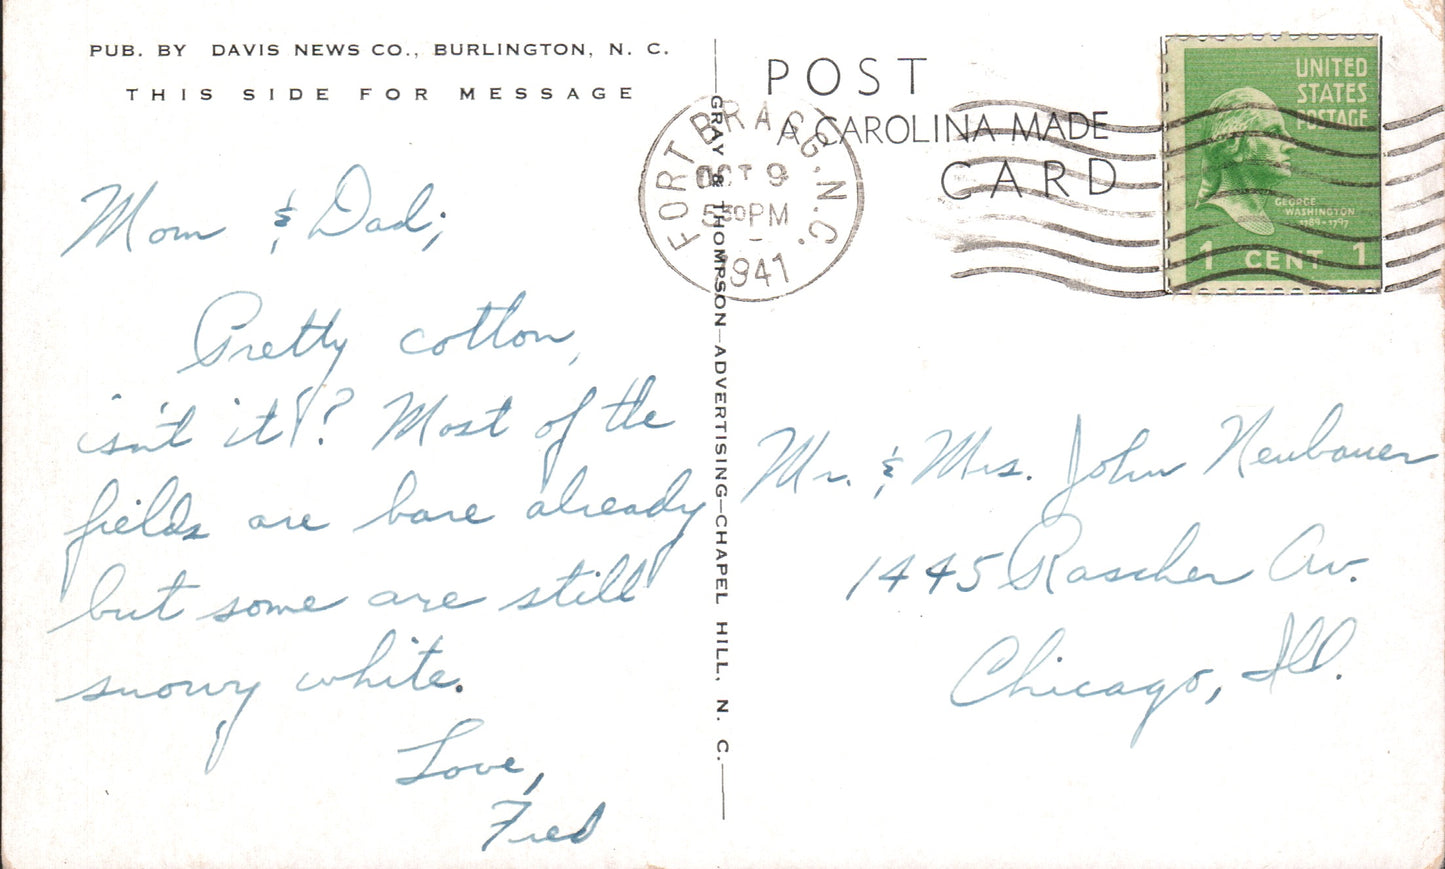 PUB. BY DAVIS NEWS CO., BURLINGTON, N. C.
THIS SIDE FOR MESSAGE
Mom & Dad;
Pretty cotton,
isn't it!? Most of the
fields are bare already
but some are still
snowy white.
Love,
Fred
GRAY & THOMPSON—ADVERTISING—CHAPEL HILL, N. C.
POST
A CAROLINA MADE
CARD
FORT BRAGG. N.C.
OCT 9
5 30 PM
1941
UNITED
STATES
POSTAGE
GEORGE
WASHINGTON
1789-1797
1 CENT 1
Mr. & Mrs. John Neubauer
1445 Rascher Av.
Chicago, Ill.